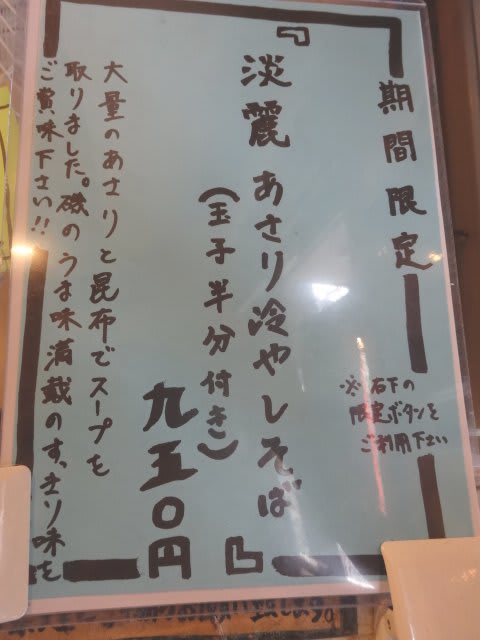 期間限定
※右下の
限定ボタンを
ご利用下さい
『淡麗あさり冷やしそば』
(玉子半分付き)
九五〇円
大量のあさりと昆布でスープを
取りました。磯のうま味満載のすっきり味を
ご賞味下さい!!